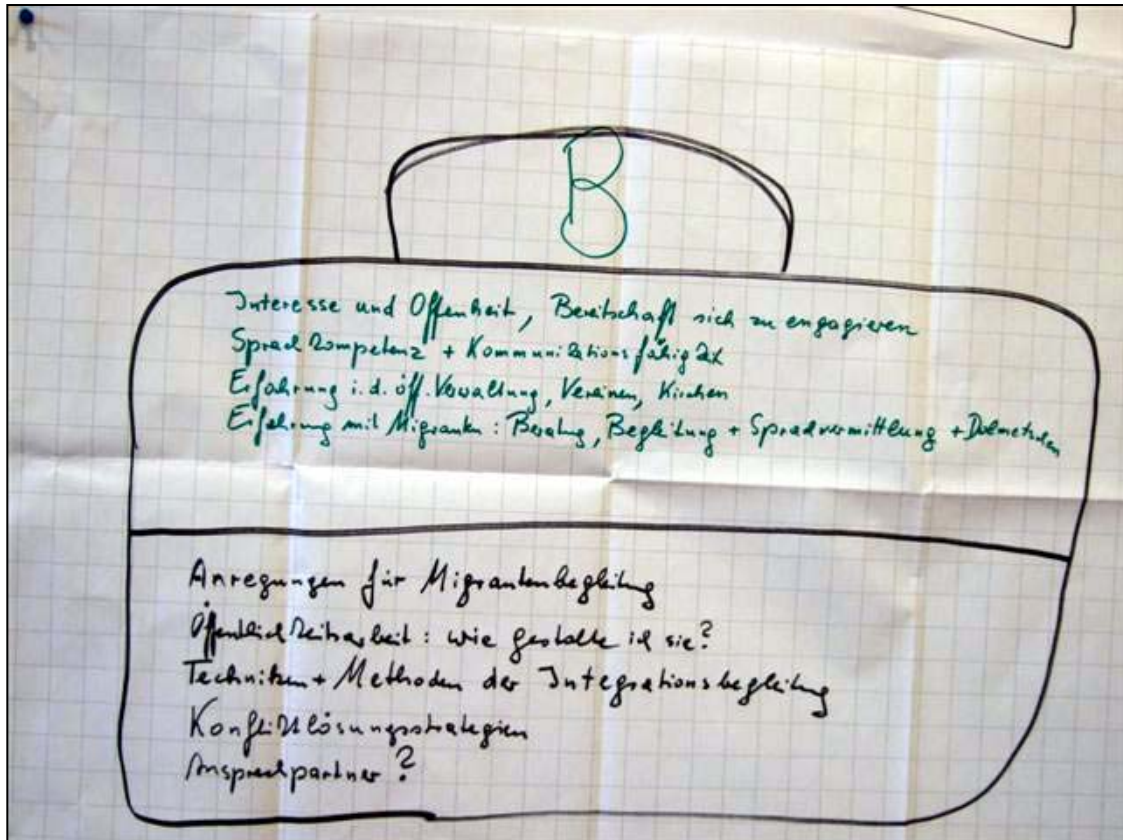 B
Interesse und Offenheit, Bereitschaft sich zu engagieren
Sprachkompetenz + Kommunikationsfähigkeit
Erfahrung i.d. öff. Verwaltung, Vereinen, Kirchen
Erfahrung mit Migranten: Beratung, Begleitung + Sprachvermittlung + Dolmetschen
Anregungen für Migrantenbegleitung
Öffentlichkeitsarbeit: wie gestalte ich sie?
Techniken + Methoden der Integrationsbegleitung
Konfliktlösungsstrategien
Ansprechpartner?